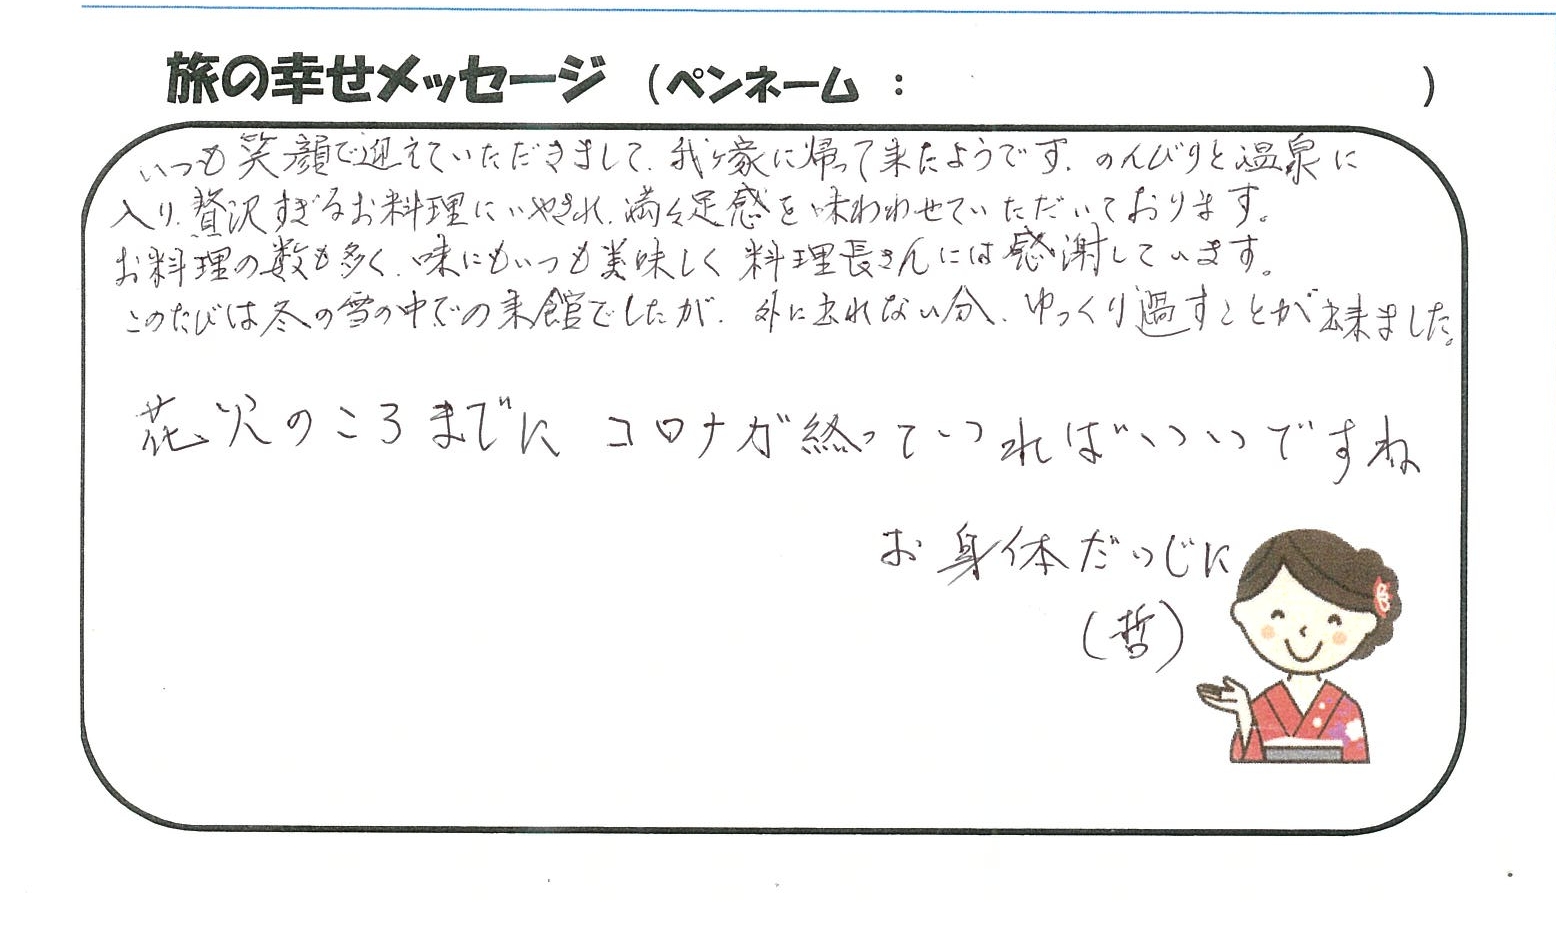 旅の幸せメッセージ (ペンネーム : )
いつも笑顔で迎えていただきまして、我ヶ家に帰って来たようです、のんびりと温泉に
入り、贅沢すぎるお料理にいやされ、満々足感を味わわせていただいております。
お料理の数も多く、味にもいつも美味しく料理長さんには感謝しています。
このたびは冬の雪の中での来館でしたが、外に出れない分、ゆっくり過すことが出来ました。
花火のころまでに コロナが終っていつればいいですね
お身体だいじに
(哲)